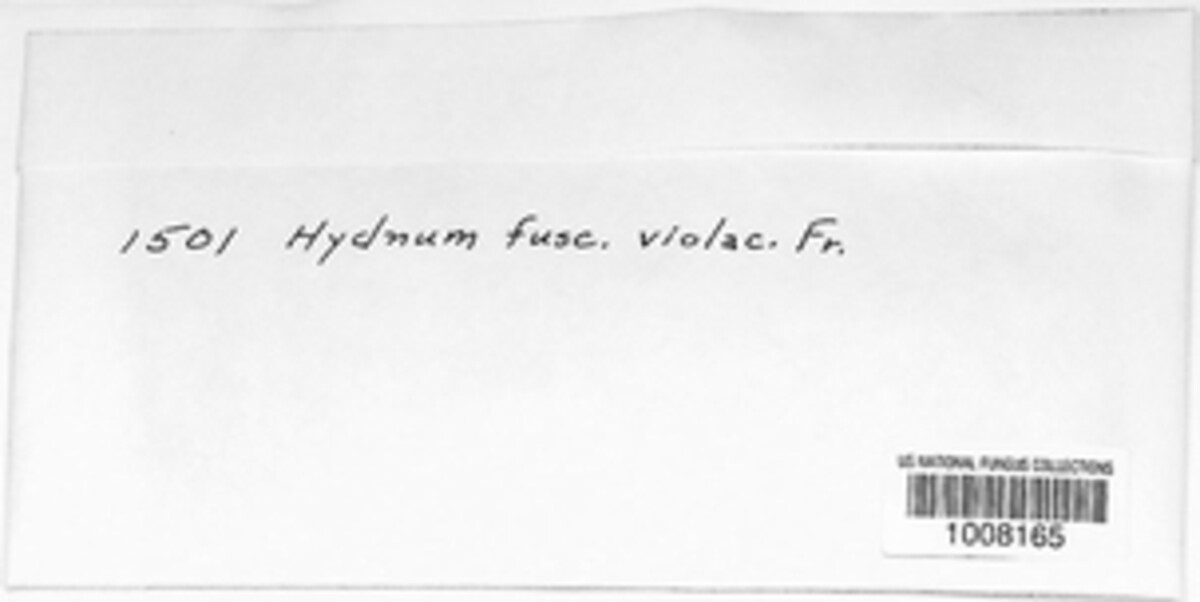 1501 Hydnum fusc. violac. Fr.
US NATIONAL FUNGUS COLLECTIONS
1008165